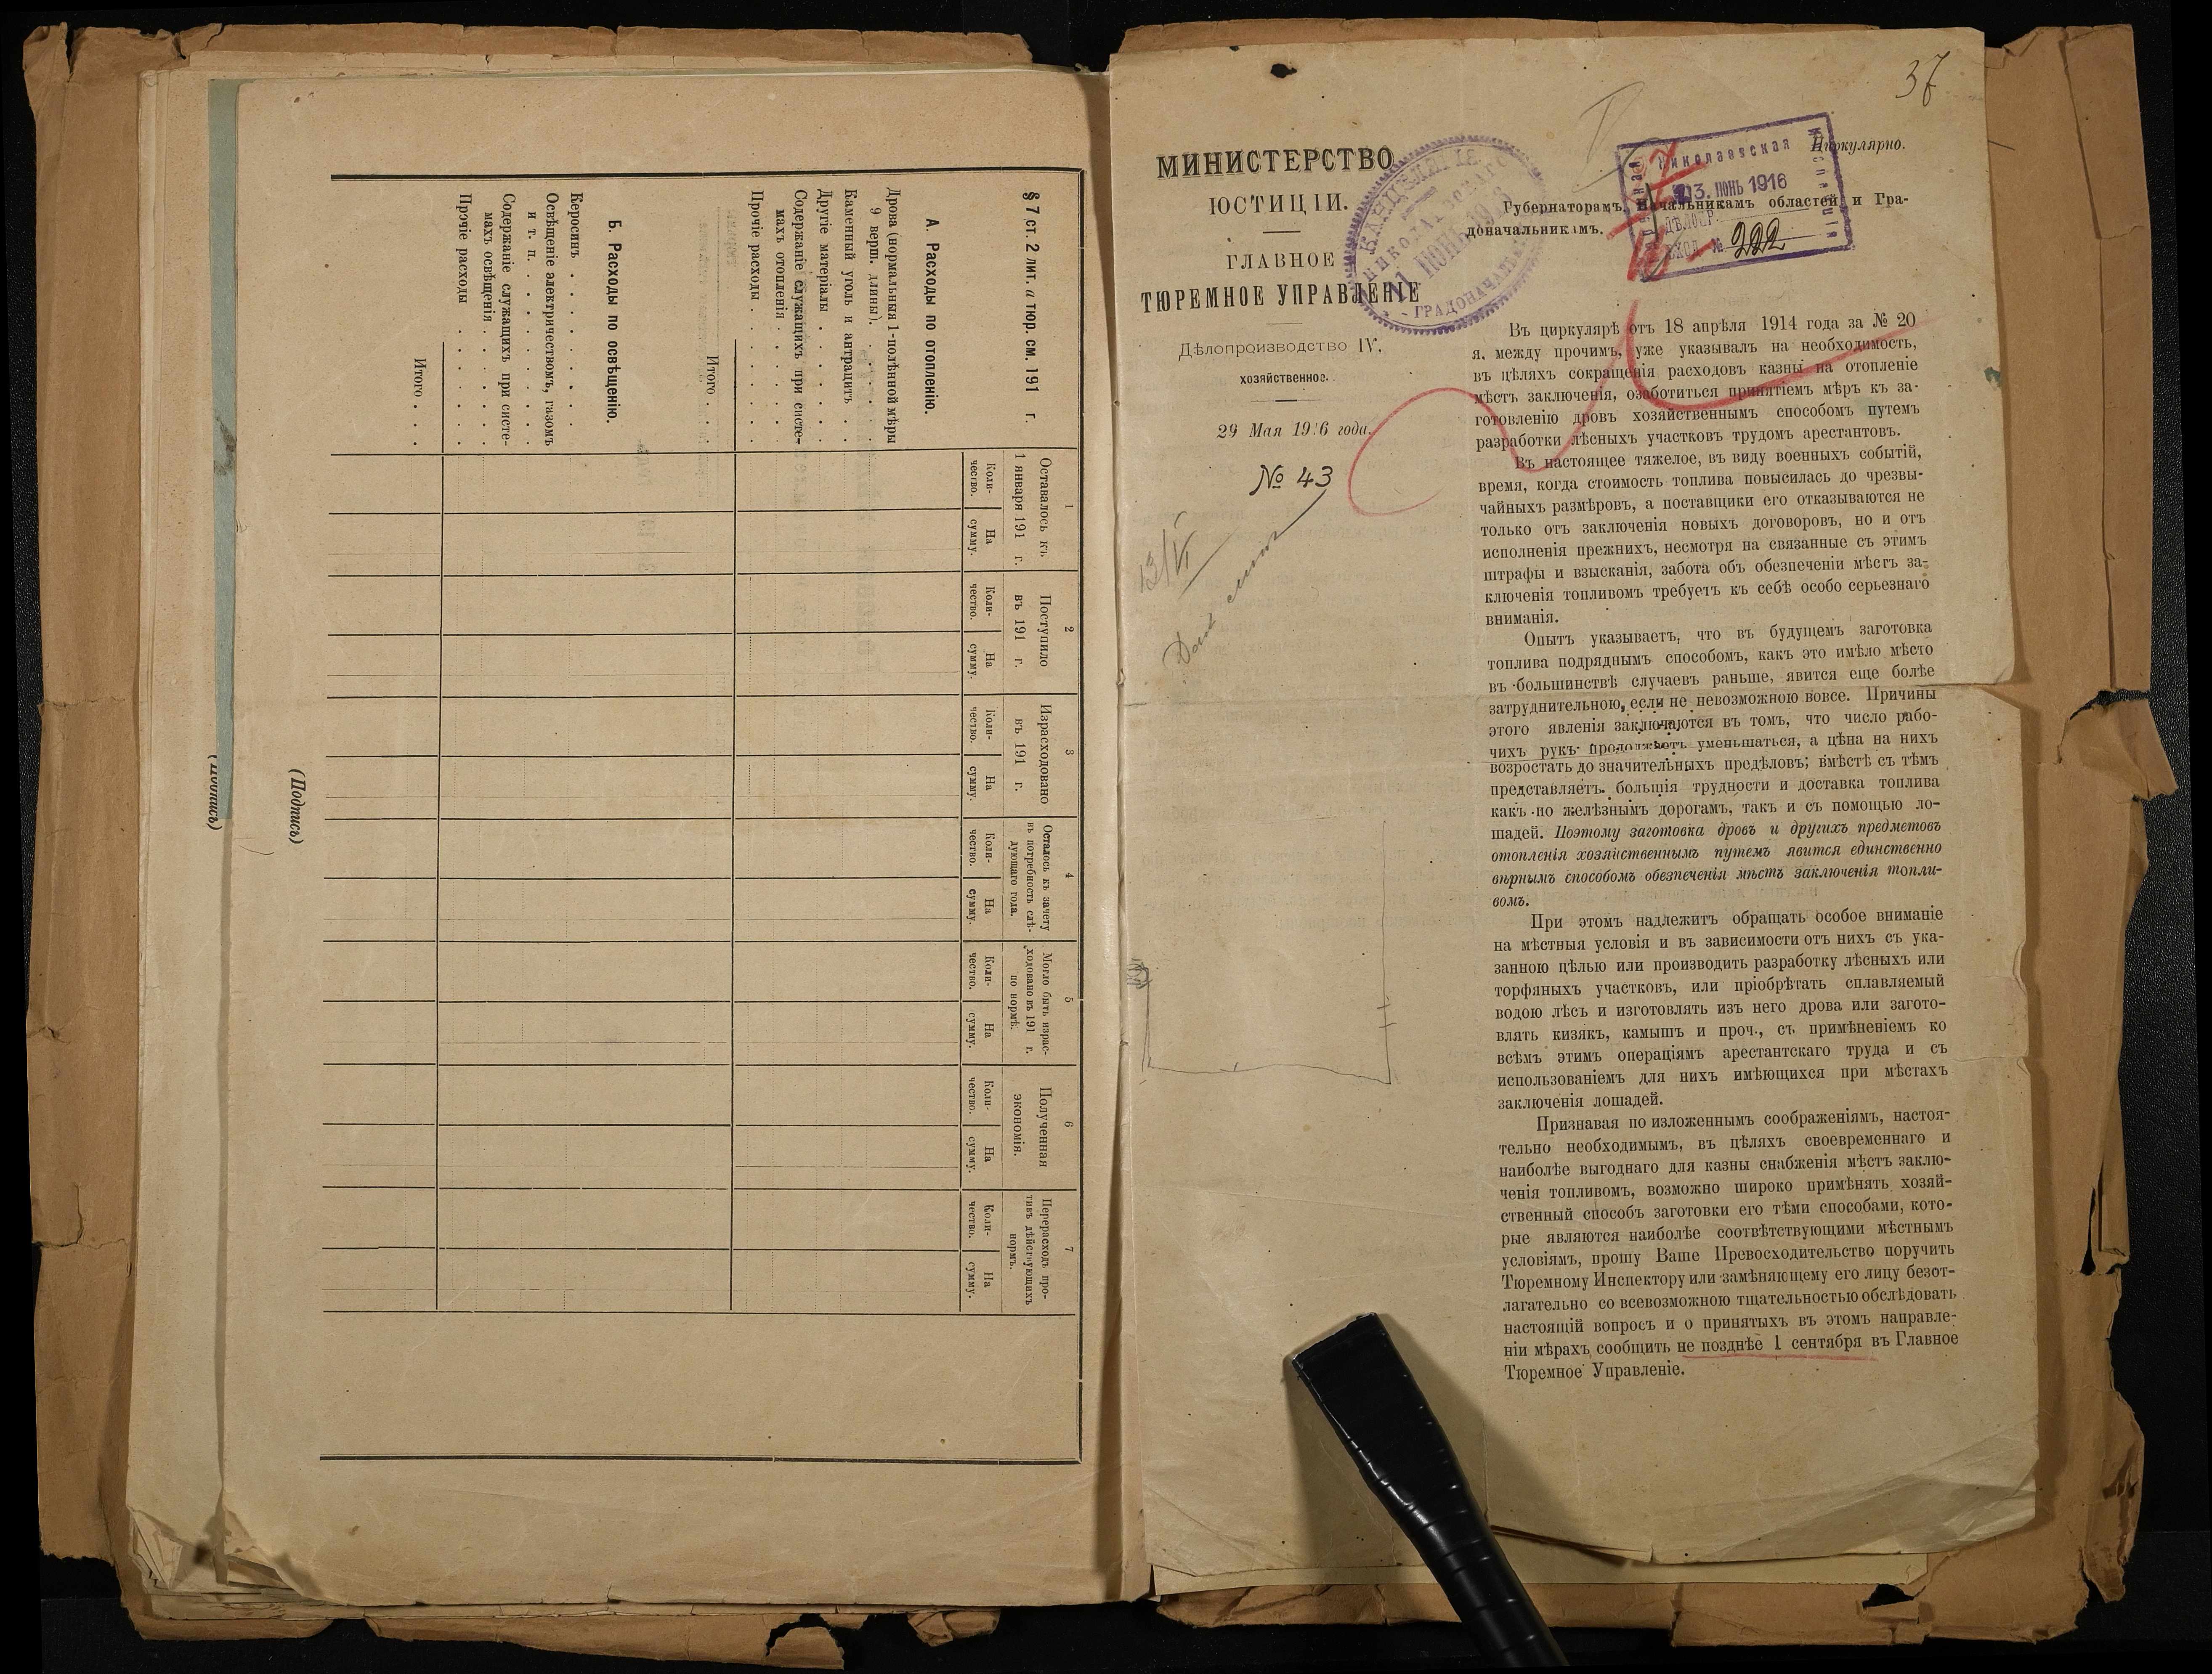 § 7 ст. 2 лит. а тюр. см. 191 г.
1
Оставалось къ
1 января 191 г.
2
Поступило
въ 191 г.
3
Израсходовано
въ 191 г.
4
Осталось къ зачету
въ потребность слѣ-
дующаго года.
5
Могло быть израс-
ходовано въ 191 г.
по нормѣ.
6
Полученная
экономія.
7
Перерасходъ про-
тивъ дѣйствующихъ
нормъ.
Коли-
чество.
На
сумму.
Коли-
чество.
На
сумму.
Коли-
чество.
На
сумму.
Коли-
чество.
На
сумму.
Коли-
чество.
На
сумму.
Коли-
чество.
На
сумму.
Коли-
чество.
На
сумму.
А. Расходы по отопленію.
Дрова (нормальныя 1-полѣнной мѣры
9 верш. длины) . . . .
Каменный уголь и антрацитъ . .
Другіе матеріалы . . . . .
Содержаніе служащихъ при систе-
махъ отопленія . . . . .
Прочіе расходы . . . . . .
Итого . . .
Б. Расходы по освѣщенію.
Керосинъ . . . . . . .
Освѣщеніе электричествомъ, газомъ
и т. п. . . . . . . .
Содержаніе служащихъ при систе-
махъ освѣщенія . . . . .
Прочіе расходы . . . . . .
Итого . . .
(Подпись)
(Подпись)
37
МИНИСТЕРСТВО
ЮСТИЦІИ.
ГЛАВНОЕ
ТЮРЕМНОЕ УПРАВЛЕНІЕ
Дѣлопроизводство IV.
хозяйственное.
29 Мая 1916 года.
№ 43
13/VI
КАНЦЕЛЯРІЯ
НИКОЛАЕВСКАГО
11 ІЮН 1916
ГРАДОНАЧАЛЬНИКА
Николаевская
13. ІЮНЬ 1916
ДѢЛОПР.
ВХОД. № 222
Циркулярно.
Губернаторамъ, Начальникамъ областей и Гра-
доначальникамъ.
Въ циркулярѣ отъ 18 апрѣля 1914 года за № 20
я, между прочимъ, уже указывалъ на необходимость,
въ цѣляхъ сокращенія расходовъ казны на отопленіе
мѣстъ заключенія, озаботиться принятіемъ мѣръ къ за-
готовленію дровъ хозяйственнымъ способомъ путемъ
разработки лѣсныхъ участковъ трудомъ арестантовъ.
Въ настоящее тяжелое, въ виду военныхъ событій,
время, когда стоимость топлива повысилась до чрезвы-
чайныхъ размѣровъ, а поставщики его отказываются не
только отъ заключенія новыхъ договоровъ, но и отъ
исполненія прежнихъ, несмотря на связанные съ этимъ
штрафы и взысканія, забота объ обезпеченіи мѣстъ за-
ключенія топливомъ требуетъ къ себѣ особо серьезнаго
вниманія.
Опытъ указываетъ, что въ будущемъ заготовка
топлива подряднымъ способомъ, какъ это имѣло мѣсто
въ большинствѣ случаевъ раньше, явится еще болѣе
затруднительною, если не невозможною вовсе. Причины
этого явленія заключаются въ томъ, что число рабо-
чихъ рукъ продолжаетъ уменьшаться, а цѣна на нихъ
возростать до значительныхъ предѣловъ; вмѣстѣ съ тѣмъ
представляетъ большія трудности и доставка топлива
какъ по желѣзнымъ дорогамъ, такъ и съ помощью ло-
шадей. Поэтому заготовка дровъ и другихъ предметовъ
отопленія хозяйственнымъ путемъ явится единственно
вѣрнымъ способомъ обезпеченія мѣстъ заключенія топли-
вомъ.
При этомъ надлежитъ обращать особое вниманіе
на мѣстныя условія и въ зависимости отъ нихъ съ ука-
занною цѣлью или производить разработку лѣсныхъ или
торфяныхъ участковъ, или пріобрѣтать сплавляемый
водою лѣсъ и изготовлять изъ него дрова или загото-
влять кизякъ, камышъ и проч., съ примѣненіемъ ко
всѣмъ этимъ операціямъ арестантскаго труда и съ
использованіемъ для нихъ имѣющихся при мѣстахъ
заключенія лошадей.
Признавая по изложеннымъ соображеніямъ, настоя-
тельно необходимымъ, въ цѣляхъ своевременнаго и
наиболѣе выгоднаго для казны снабженія мѣстъ заклю-
ченія топливомъ, возможно широко примѣнять хозяй-
ственный способъ заготовки его тѣми способами, кото-
рые являются наиболѣе соотвѣтствующими мѣстнымъ
условіямъ, прошу Ваше Превосходительство поручить
Тюремному Инспектору или замѣняющему его лицу безот-
лагательно со всевозможною тщательностью обслѣдовать
настоящій вопросъ и о принятыхъ въ этомъ направле-
ніи мѣрахъ сообщить не позднѣе 1 сентября въ Главное
Тюремное Управленіе.